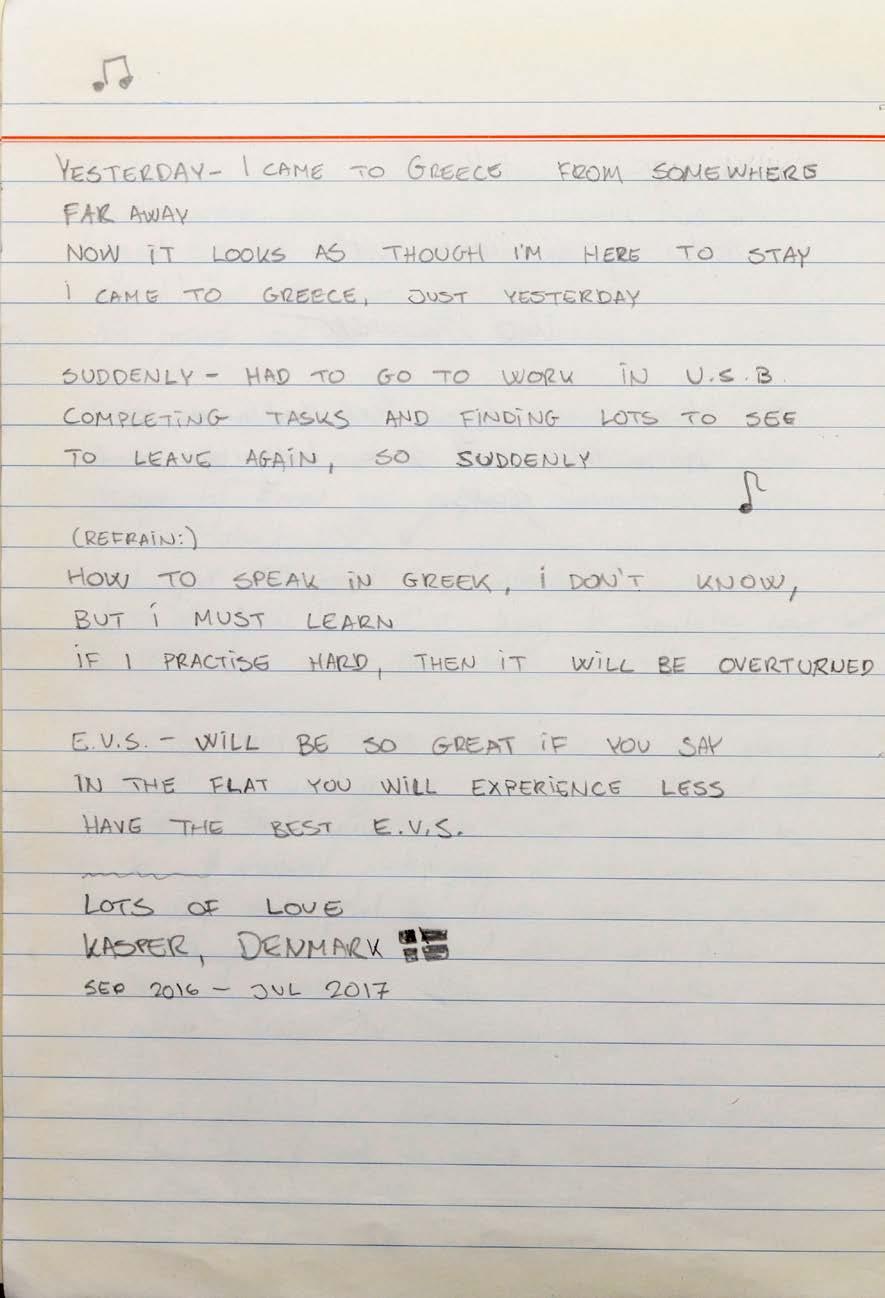 YESTERDAY - I CAME TO GREECE FROM SOMEWHERE
FAR AWAY
NOW IT LOOKS AS THOUGH I'M HERE TO STAY
I CAME TO GREECE, JUST YESTERDAY
SUDDENLY - HAD TO GO TO WORK IN U.S.B.
COMPLETING TASKS AND FINDING LOTS TO SEE
TO LEAVE AGAIN, SO SUDDENLY
(REFRAIN:)
HOW TO SPEAK IN GREEK, I DON'T KNOW,
BUT I MUST LEARN
IF I PRACTISE HARD, THEN IT WILL BE OVERTURNED
E.V.S. - WILL BE SO GREAT IF YOU SAY
IN THE FLAT YOU WILL EXPERIENCE LESS
HAVE THE BEST E.V.S.
LOTS OF LOVE
KASPER, DENMARK
SEP 2016 - JUL 2017